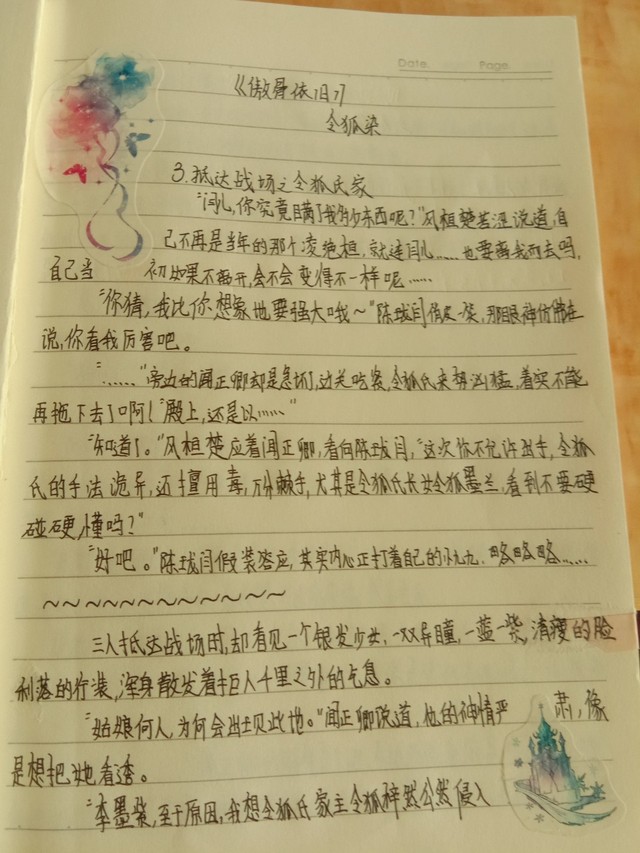 Date. Page.
《傲骨依旧》
令狐染
3.抵达战场之令狐氏家
“闫儿,你究竟瞒了我多少东西呢?”风桓楚苦涩说道,自
己不再是当年的那个凌绝桓,就连闫儿……也要离我而去吗,
自己当初如果不离开,会不会变得不一样呢……
“你猜,我比你想象地要强大哦~”陈珑闫俏皮一笑,那眼神仿佛在
说,你看我厉害吧。
“……”旁边的闻正卿却是急坏了,边关吃紧,令狐氏来势凶猛,着实不能
再拖下去了啊!“殿上,还是以……”
“知道了。”风桓楚应着闻正卿,看向陈珑闫,“这次你不允许出手,令狐
氏的手法诡异,还擅用毒,万分棘手,尤其是令狐氏长女令狐墨兰,看到不要硬
碰硬,懂吗?”
“好吧。”陈珑闫假装答应,其实内心正打着自己的小九九.略略略……
~~~~~~~~~~~~
三人抵达战场时,却看见一个银发少女,一双异瞳,一蓝一紫,清瘦的脸
利落的行装,浑身散发着拒人千里之外的气息。
“姑娘何人,为何会出现此地。”闻正卿说道,他的神情严肃,像
是想把她看透。
“李墨紫,至于原因,我想令狐氏家主令狐梓然公然侵入